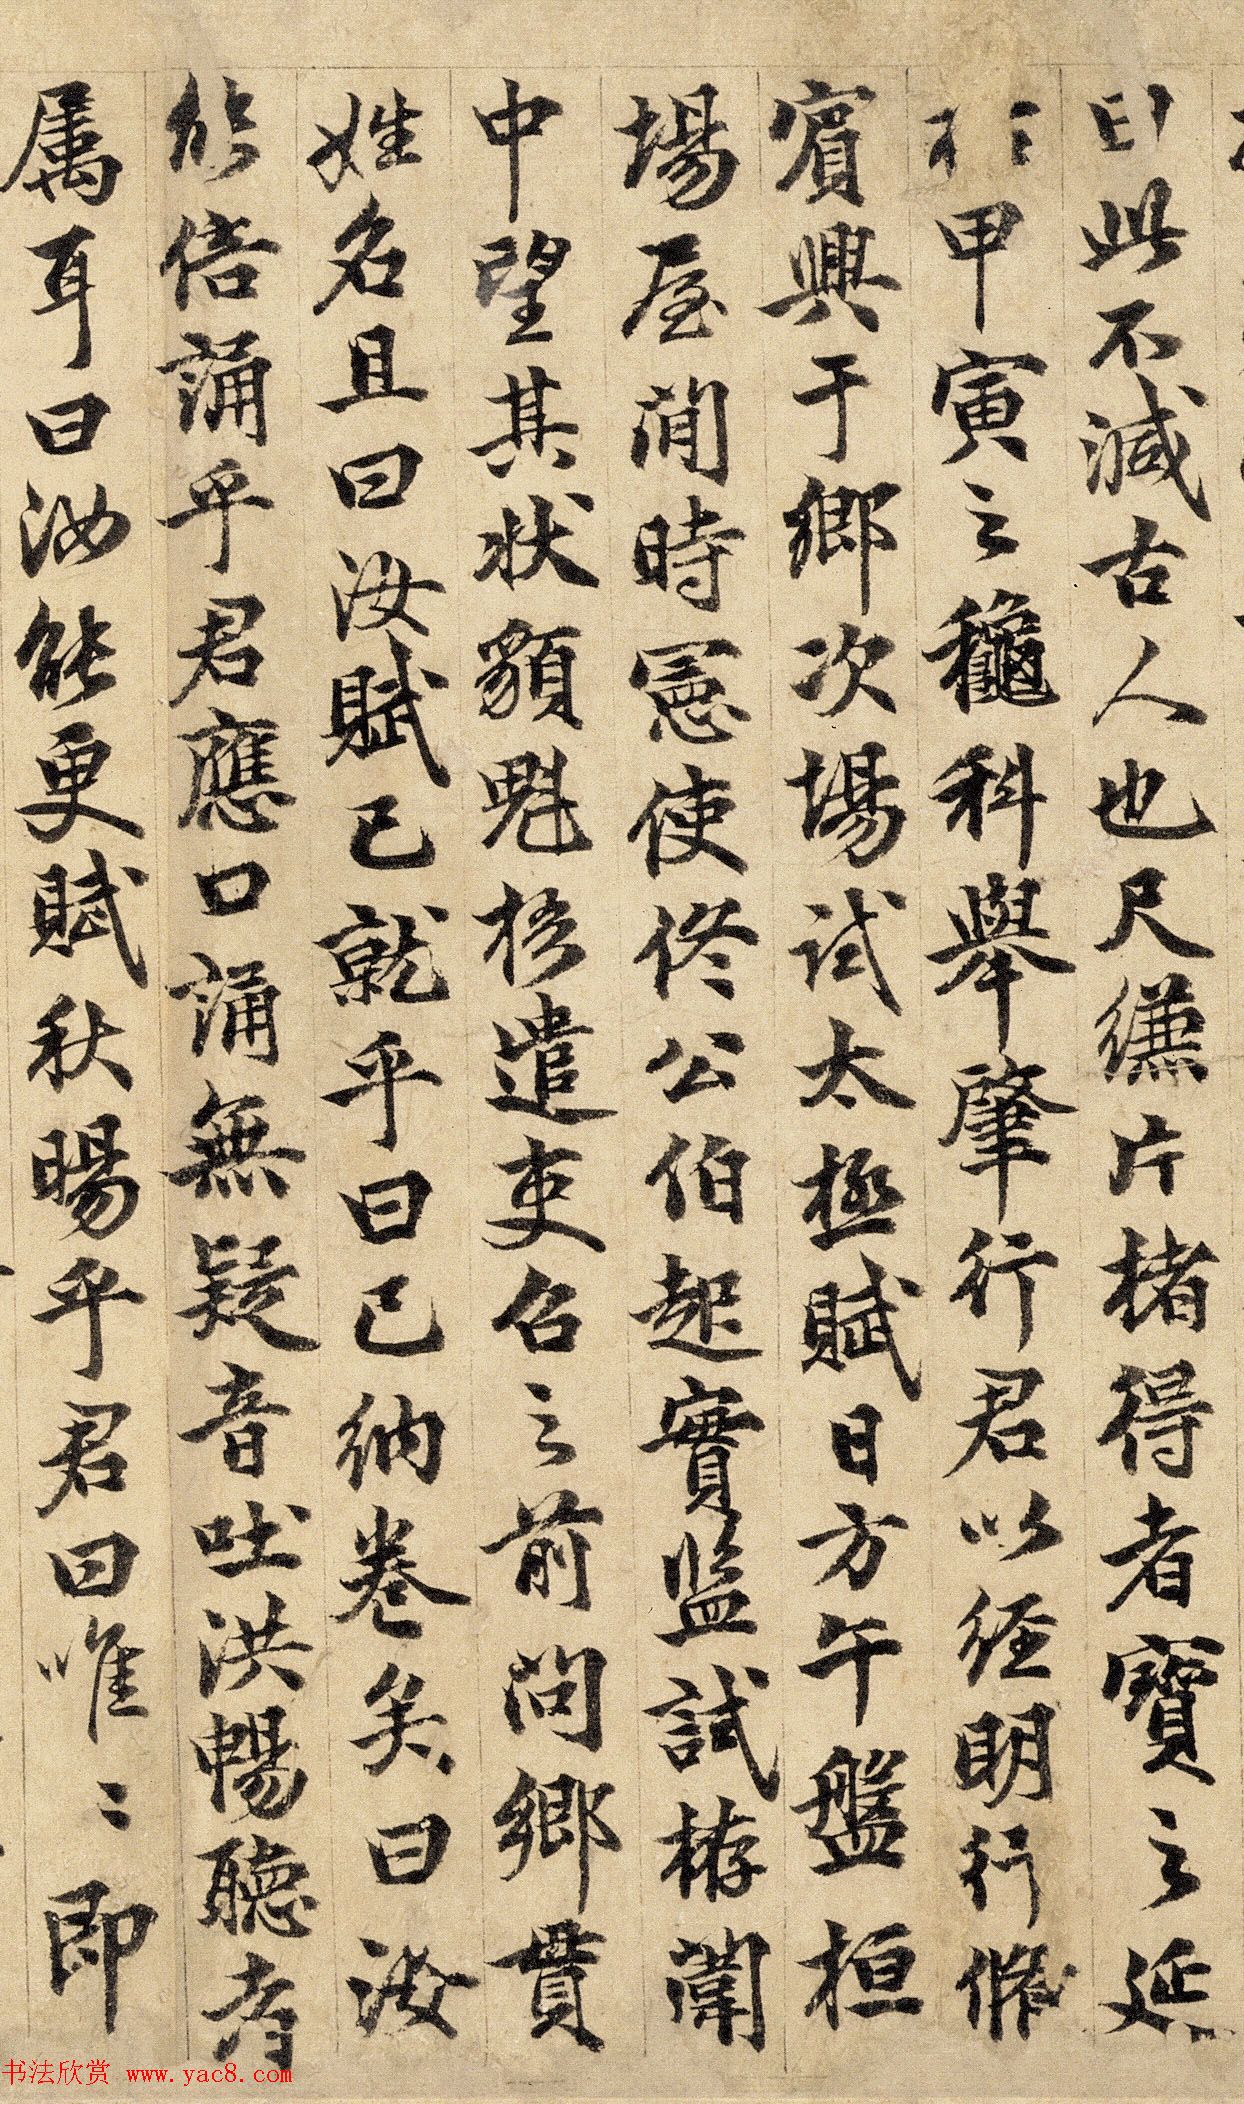 印此不減古人也尺縑片楮得者寶之延
祐甲寅之龝科舉肇行君以經明行脩
賔興于鄉次場試太極賦日方午盤桓
場屋間時憲使佟公伯起實監試栫闈
中望其狀貌魁梧遣吏召之前問鄉貫
姓名且曰汝賦已就乎曰已納卷矣曰汝
能倍誦乎君應口誦無疑音吐洪暢聽者
属耳曰汝能更賦秋暘乎君曰唯〻即
书法欣赏 www.yac8.com